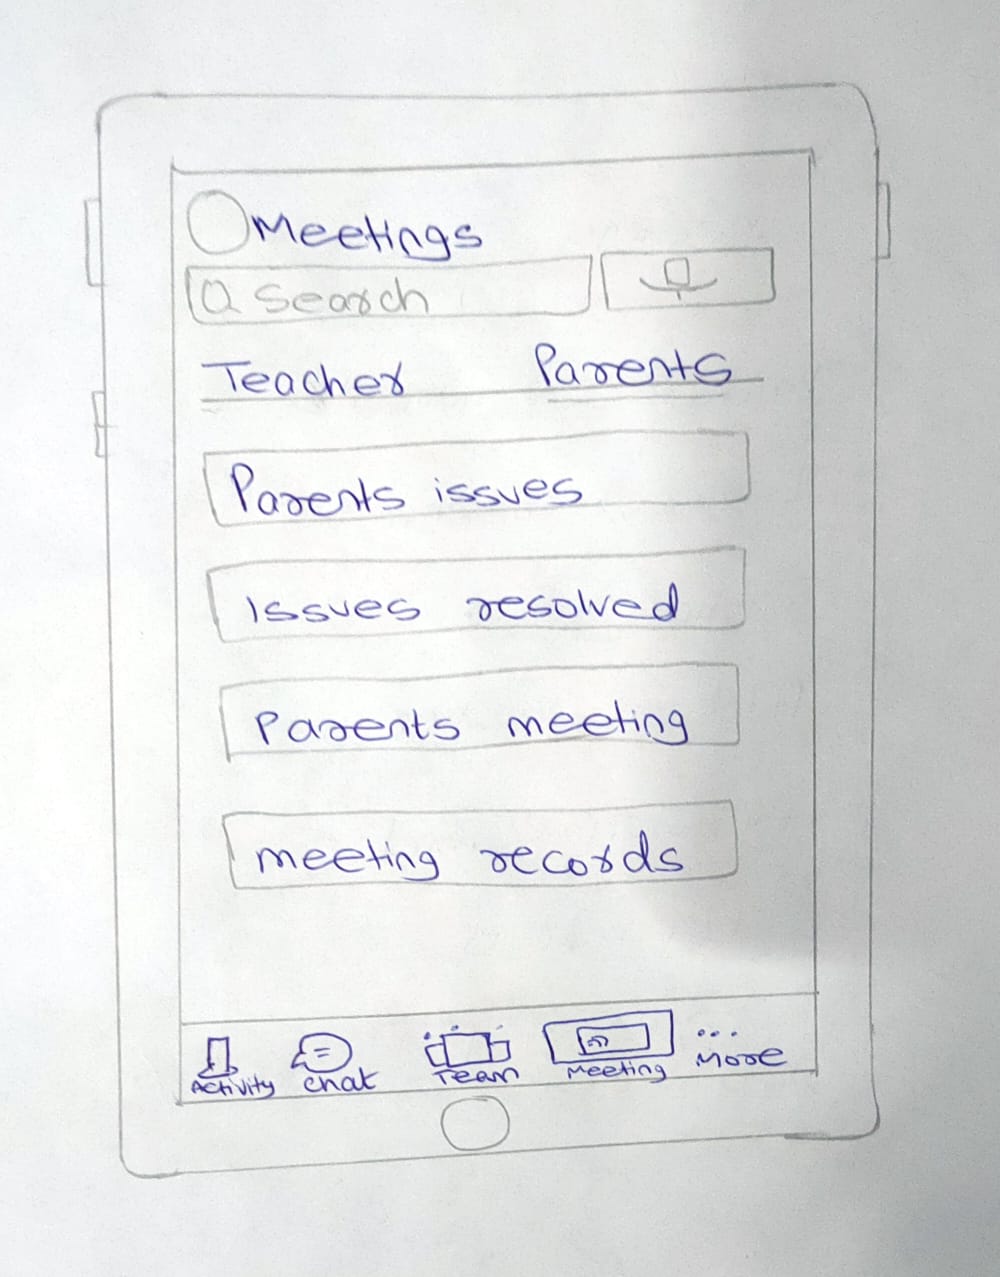 Meetings
Search
Teacher Parents
Parents issues
Issues resolved
Parents meeting
meeting records
Activity chat Team Meeting More